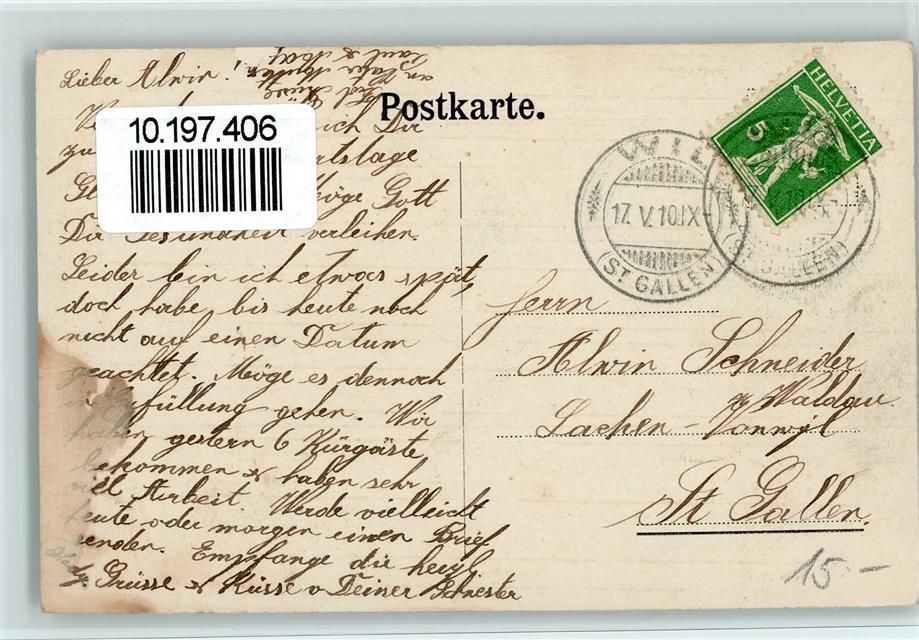 Lieber Alwin!
ich Dir
zu rtstage
Gl öge Gott
Dir Gesundheit verleihen.
Leider bin ich etwas spät,
doch habe bis heute noch
nicht auf einen Datum
geachtet. Möge es dennoch
in Erfüllung gehen. Wir
haben gestern 6 Kurgäste
bekommen & haben sehr
viel Arbeit. Werde vielleicht
heute oder morgen einen Brief
senden. Empfange die herzl
Grüsse & Küsse v Deiner Schwester
Hedy.
10.197.406
Postkarte.
HELVETIA
5
WIL
17. V. 10. IX-
(ST GALLEN)
(ST GALLEN)
Herrn
Alwin Schneider
z. Waldau
Lachen-Vonwyl
St Gallen.
15-